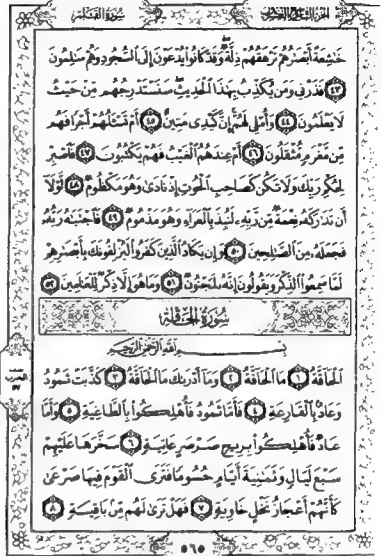 سورة القلم
الجزء التاسع والعشرون
خَٰشِعَةً أَبْصَٰرُهُمْ تَرْهَقُهُمْ ذِلَّةٌ وَقَدْ كَانُوا۟ يُدْعَوْنَ إِلَى ٱلسُّجُودِ وَهُمْ سَٰلِمُونَ
٤٣ فَذَرْنِى وَمَن يُكَذِّبُ بِهَٰذَا ٱلْحَدِيثِ سَنَسْتَدْرِجُهُم مِّنْ حَيْثُ
لَا يَعْلَمُونَ ٤٤ وَأُمْلِى لَهُمْ إِنَّ كَيْدِى مَتِينٌ ٤٥ أَمْ تَسْـَٔلُهُمْ أَجْرًا فَهُم
مِّن مَّغْرَمٍ مُّثْقَلُونَ ٤٦ أَمْ عِندَهُمُ ٱلْغَيْبُ فَهُمْ يَكْتُبُونَ ٤٧ فَٱصْبِرْ
لِحُكْمِ رَبِّكَ وَلَا تَكُن كَصَاحِبِ ٱلْحُوتِ إِذْ نَادَىٰ وَهُوَ مَكْظُومٌ ٤٨ لَّوْلَآ
أَن تَدَٰرَكَهُۥ نِعْمَةٌ مِّن رَّبِّهِۦ لَنُبِذَ بِٱلْعَرَآءِ وَهُوَ مَذْمُومٌ ٤٩ فَٱجْتَبَٰهُ رَبُّهُۥ
فَجَعَلَهُۥ مِنَ ٱلصَّٰلِحِينَ ٥٠ وَإِن يَكَادُ ٱلَّذِينَ كَفَرُوا۟ لَيُزْلِقُونَكَ بِأَبْصَٰرِهِمْ
لَمَّا سَمِعُوا۟ ٱلذِّكْرَ وَيَقُولُونَ إِنَّهُۥ لَمَجْنُونٌ ٥١ وَمَا هُوَ إِلَّا ذِكْرٌ لِّلْعَٰلَمِينَ ٥٢
سُورَةُ الْحَاقَّةِ
بِسْمِ ٱللَّهِ ٱلرَّحْمَٰنِ ٱلرَّحِيمِ
ٱلْحَآقَّةُ ١ مَا ٱلْحَآقَّةُ ٢ وَمَآ أَدْرَىٰكَ مَا ٱلْحَآقَّةُ ٣ كَذَّبَتْ ثَمُودُ
وَعَادٌۢ بِٱلْقَارِعَةِ ٤ فَأَمَّا ثَمُودُ فَأُهْلِكُوا۟ بِٱلطَّاغِيَةِ ٥ وَأَمَّا
عَادٌ فَأُهْلِكُوا۟ بِرِيحٍ صَرْصَرٍ عَاتِيَةٍ ٦ سَخَّرَهَا عَلَيْهِمْ
سَبْعَ لَيَالٍ وَثَمَٰنِيَةَ أَيَّامٍ حُسُومًا فَتَرَى ٱلْقَوْمَ فِيهَا صَرْعَىٰ
كَأَنَّهُمْ أَعْجَازُ نَخْلٍ خَاوِيَةٍ ٧ فَهَلْ تَرَىٰ لَهُم مِّنۢ بَاقِيَةٍ ٨
٥٦٥